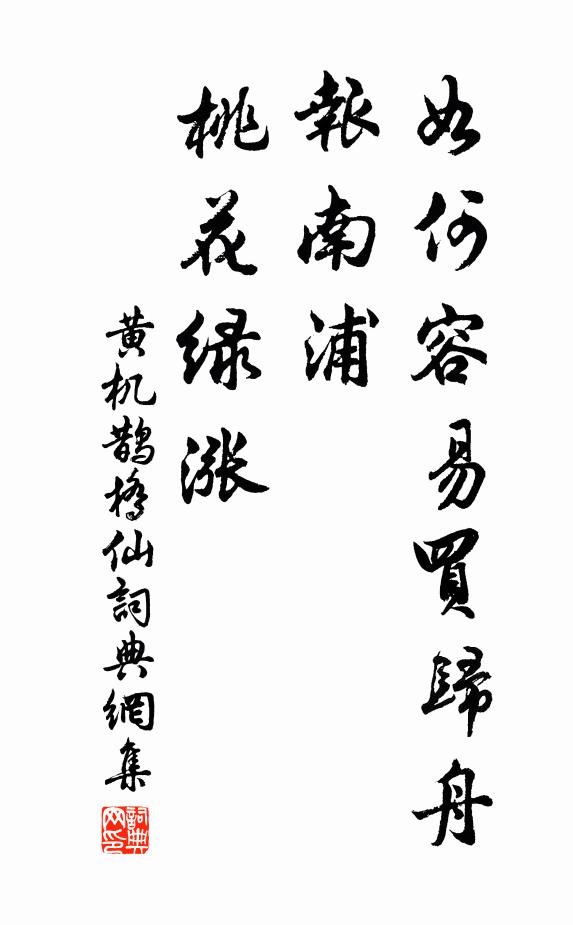 如何容易買歸舟
報南浦
桃花绿漲
黄机鹊橋仙詞典網集
詞典网印